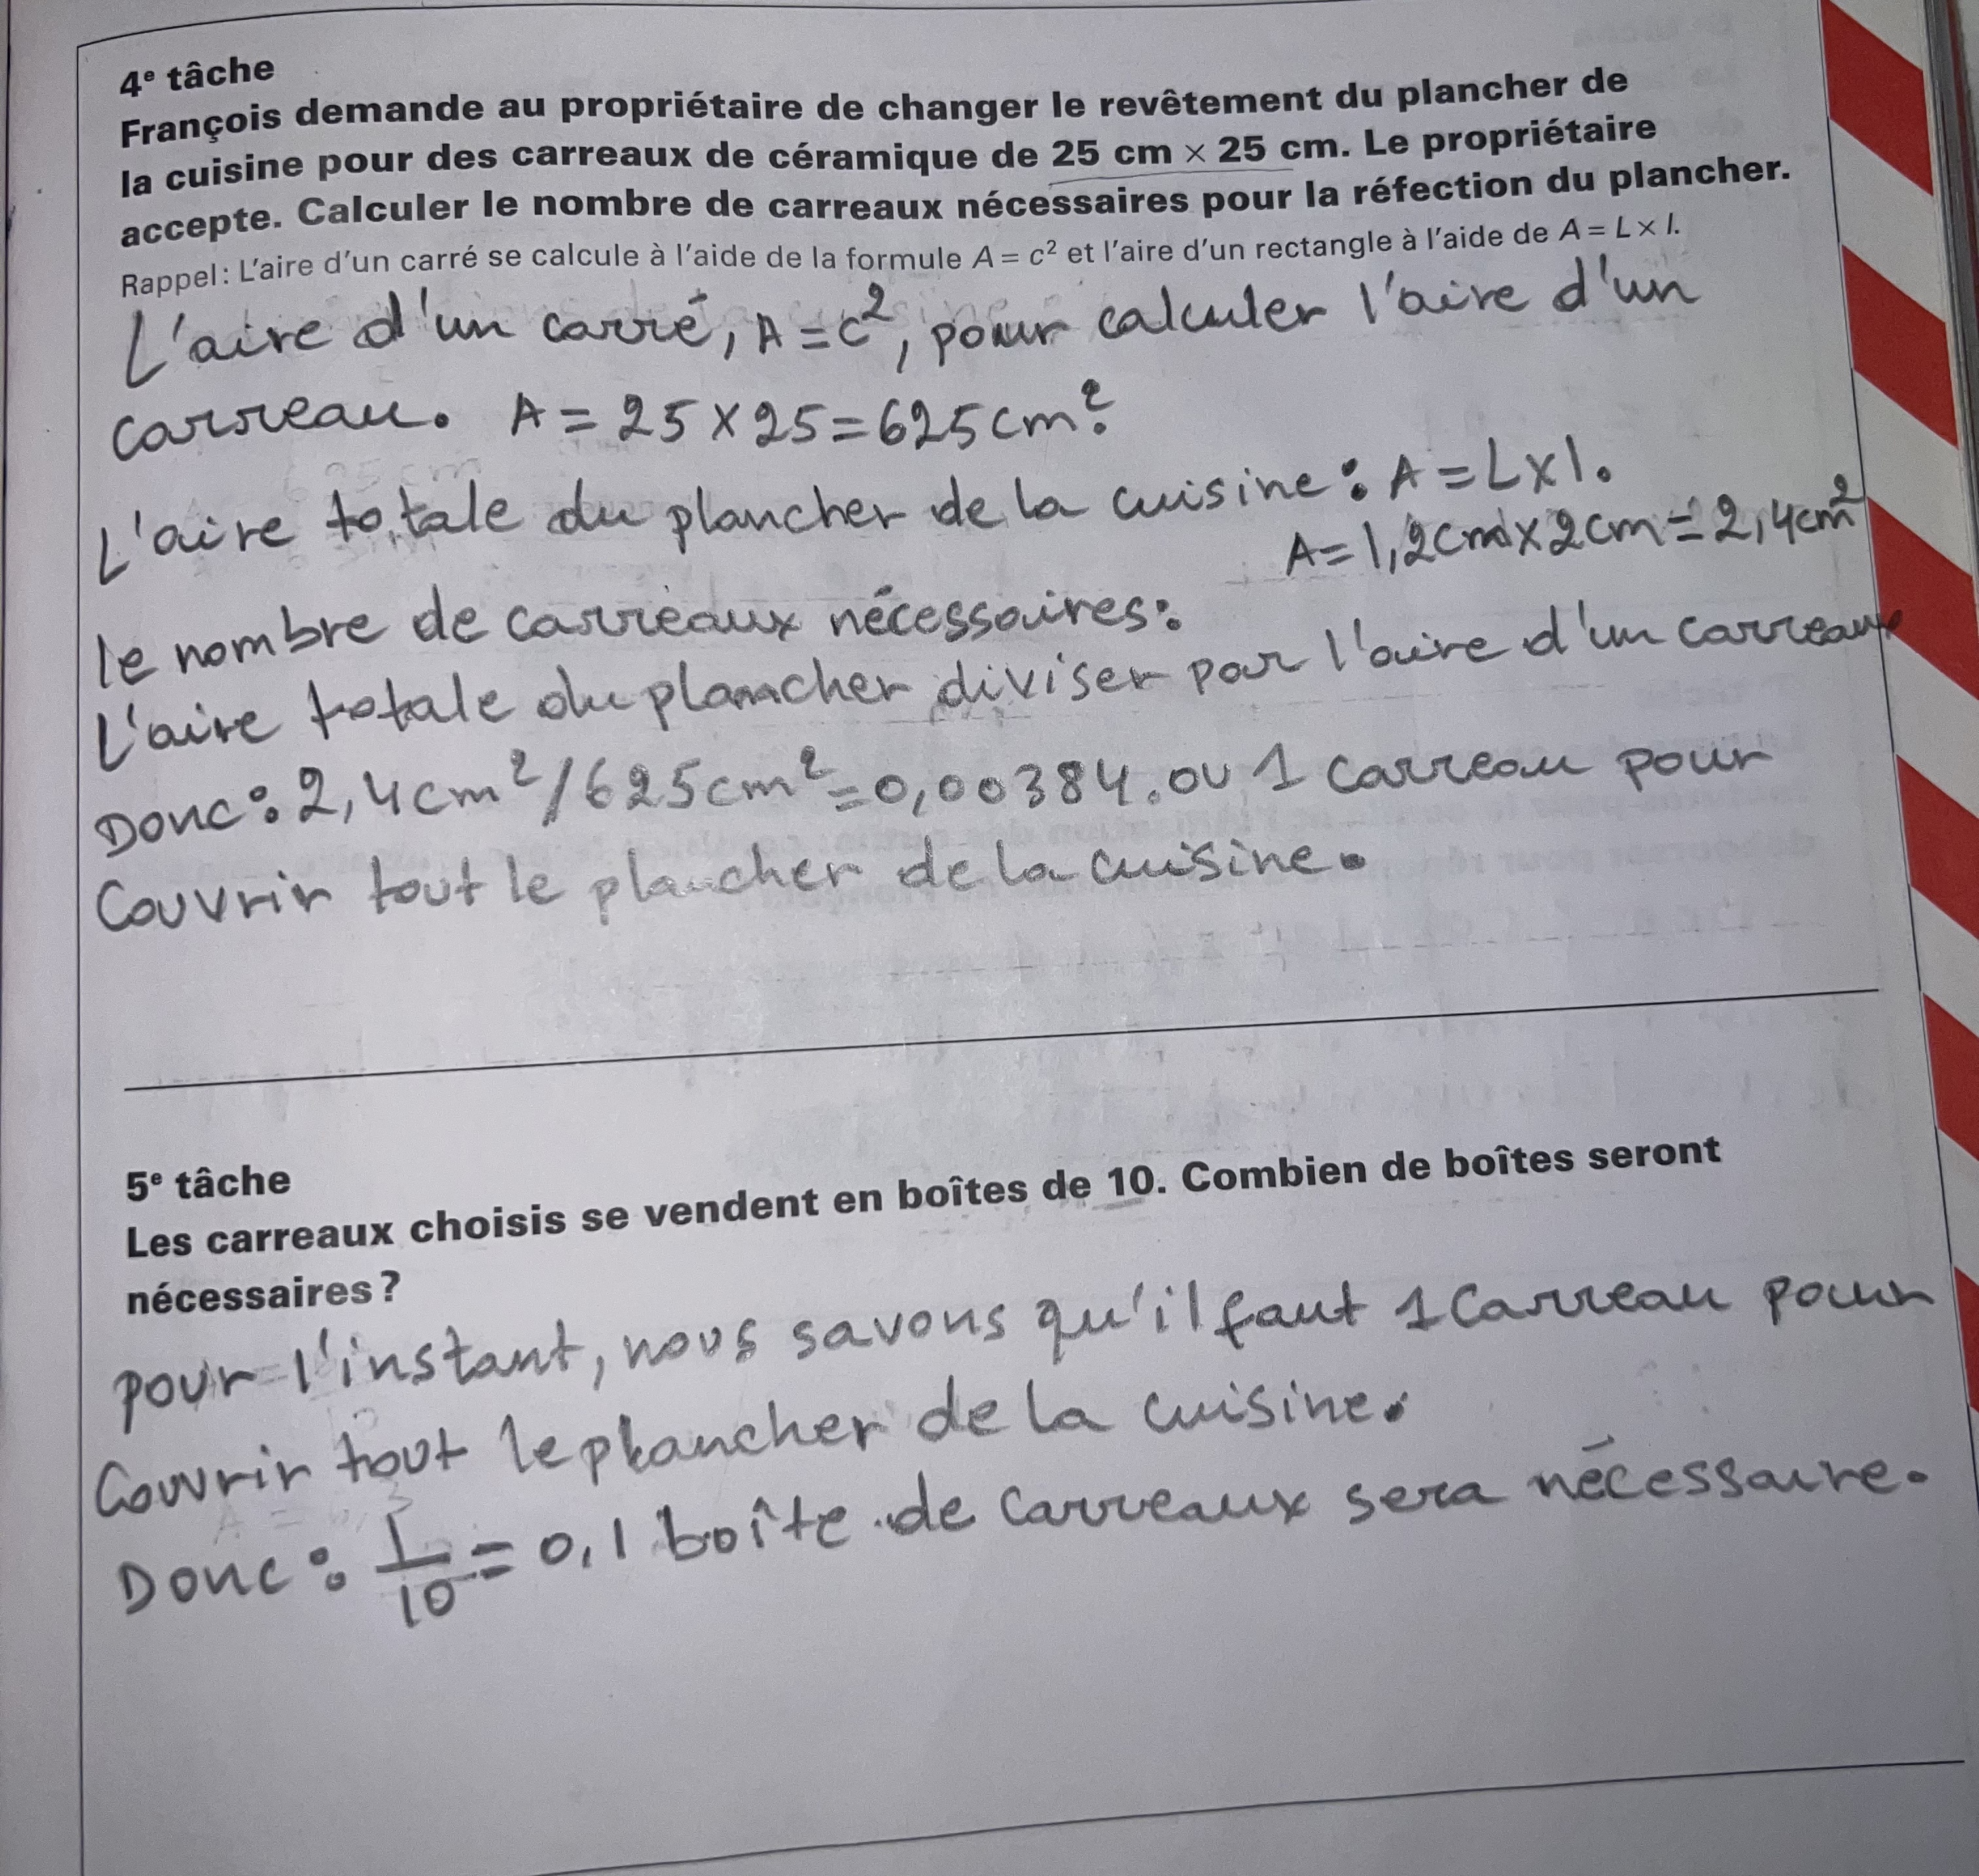 4e tâche
François demande au propriétaire de changer le revêtement du plancher de
la cuisine pour des carreaux de céramique de 25 cm × 25 cm. Le propriétaire
accepte. Calculer le nombre de carreaux nécessaires pour la réfection du plancher.
Rappel : L'aire d'un carré se calcule à l'aide de la formule A = c² et l'aire d'un rectangle à l'aide de A = L × l.
L'aire d'un carré, A = c², pour calculer l'aire d'un
carreau. A = 25 × 25 = 625 cm².
L'aire totale du plancher de la cuisine : A = L × l.
A = 1,2 cm × 2 cm = 2,4 cm²
le nombre de carreaux nécessaires :
L'aire totale du plancher diviser par l'aire d'un carreau
Donc : 2,4 cm² / 625 cm² = 0,00384. ou 1 carreau pour
Couvrir tout le plancher de la cuisine.
5e tâche
Les carreaux choisis se vendent en boîtes de 10. Combien de boîtes seront
nécessaires ?
pour l'instant, nous savons qu'il faut 1 Carreau pour
Couvrir tout le plancher de la cuisine.
Donc : 1/10 = 0,1 boîte de carreaux sera nécessaire.